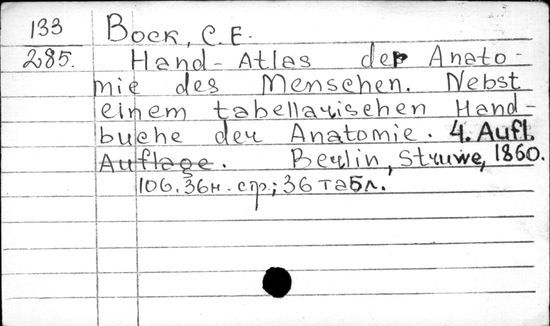 133 Bock, C. E.
285. Hand-Atlas der Anato-
mie des Menschen. Nebst
einem tabellarischen Hand-
buche der Anatomie. 4. Aufl.
Auflage. Berlin, Struwe, 1860.
106. 36н. стр.; 36 табл.